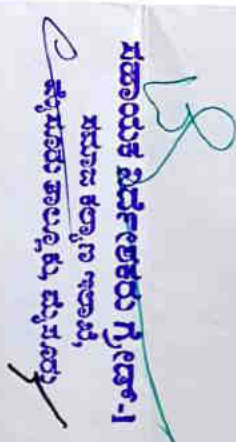 ಸಹಾಯಕ ನಿರ್ದೇಶಕರು ಗ್ರೇಡ್-1
ಸಮಾಜ ಕಲ್ಯಾಣ ಇಲಾಖೆ,
ಮೈಸೂರು ತಾಲ್ಲೂಕು, ಮೈಸೂರು